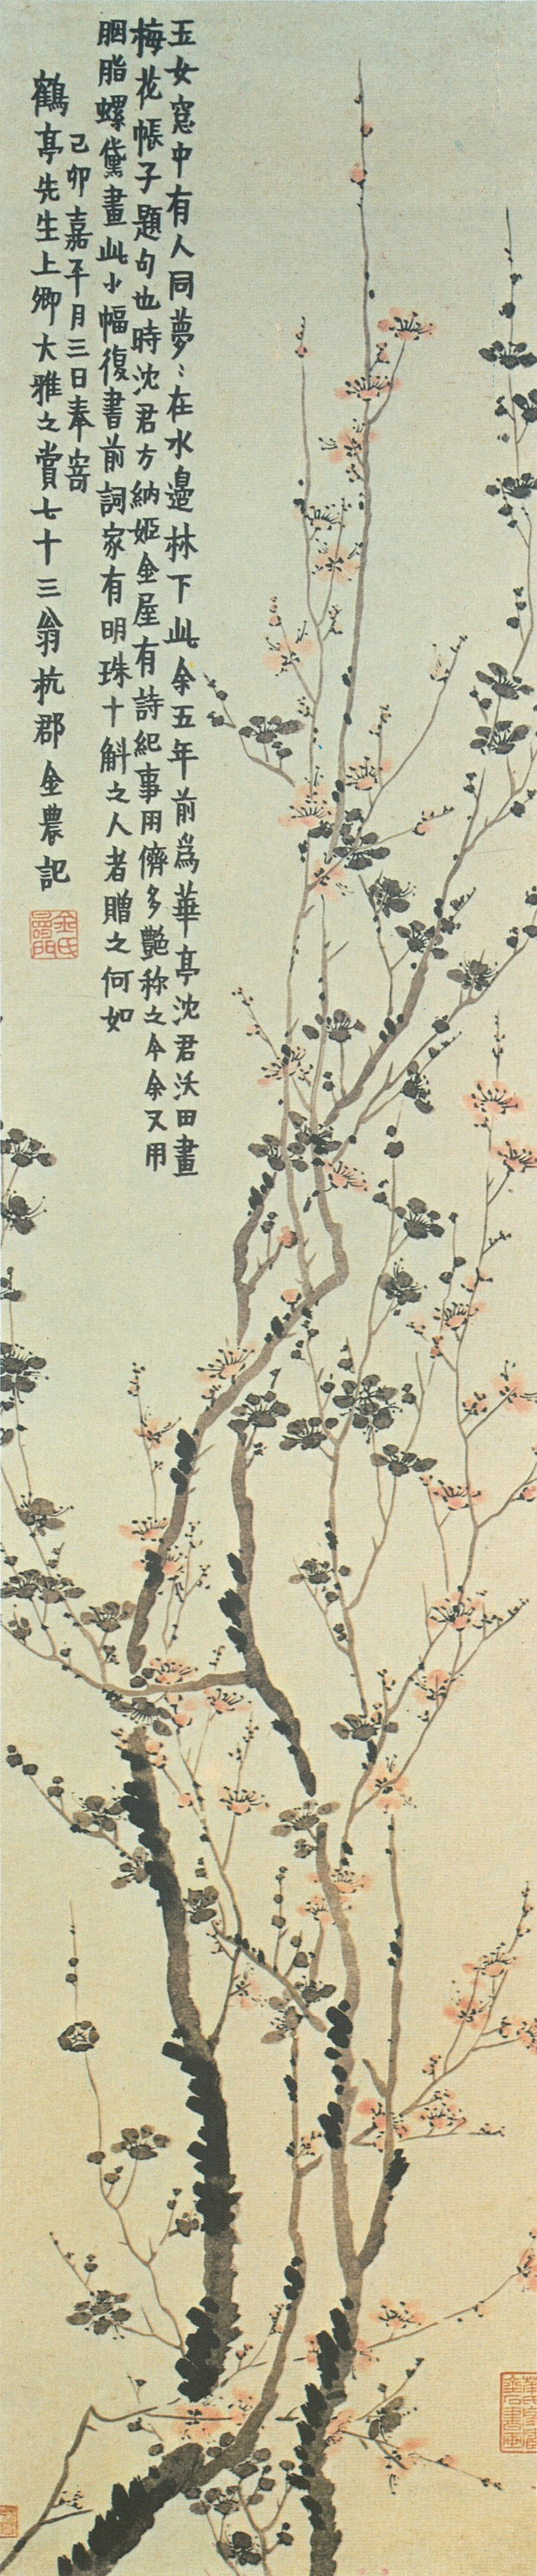 玉女窓中有人同夢〻在水邉林下此余五年前爲華亭沈君沃田畫
梅花帳子題句也時沈君方納姬金屋有詩紀事用儕多艶称之今余又用
胭脂螺黛畫此小幅復書前詞家有明珠十斛之人者贈之何如
己卯嘉平月三日奉寄
鶴亭先生上卿大雅之賞七十三翁杭郡金農記
金氏